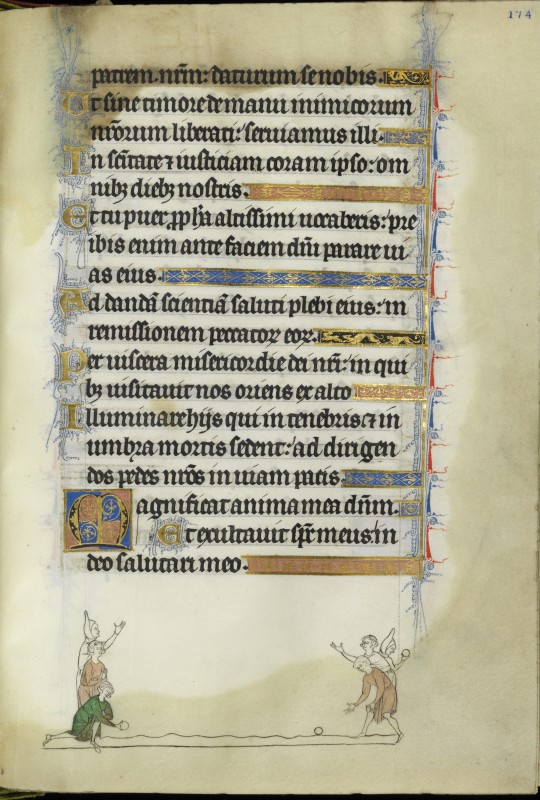 174
patrem. nr̄m: daturum se nobis.
Ut sine timore de manu inimicorum
nr̄orum liberati: seruiamus illi.
In sc̄itate ⁊ iusticiam coram ipso: om
nibꝫ diebꝫ nostris.
Et tu puer ꝓph̄a altissimi uocaberis: pre
ibis enim ante faciem dn̄i parare ui
as eius.
Ad dandā scientiā saluti plebi eius: in
remissionem peccatoꝝ eoꝝ.
Per uiscera misericordie dei nr̄i: in qui
bꝫ uisitauit nos oriens ex alto
Illuminare hijs qui in tenebris ⁊ in
umbra mortis sedent: ad dirigen
dos pedes nr̄os in uiam pacis.
Magnificat anima mea dn̄m.
Et exultauit sp̄c meus in
deo salutari meo.